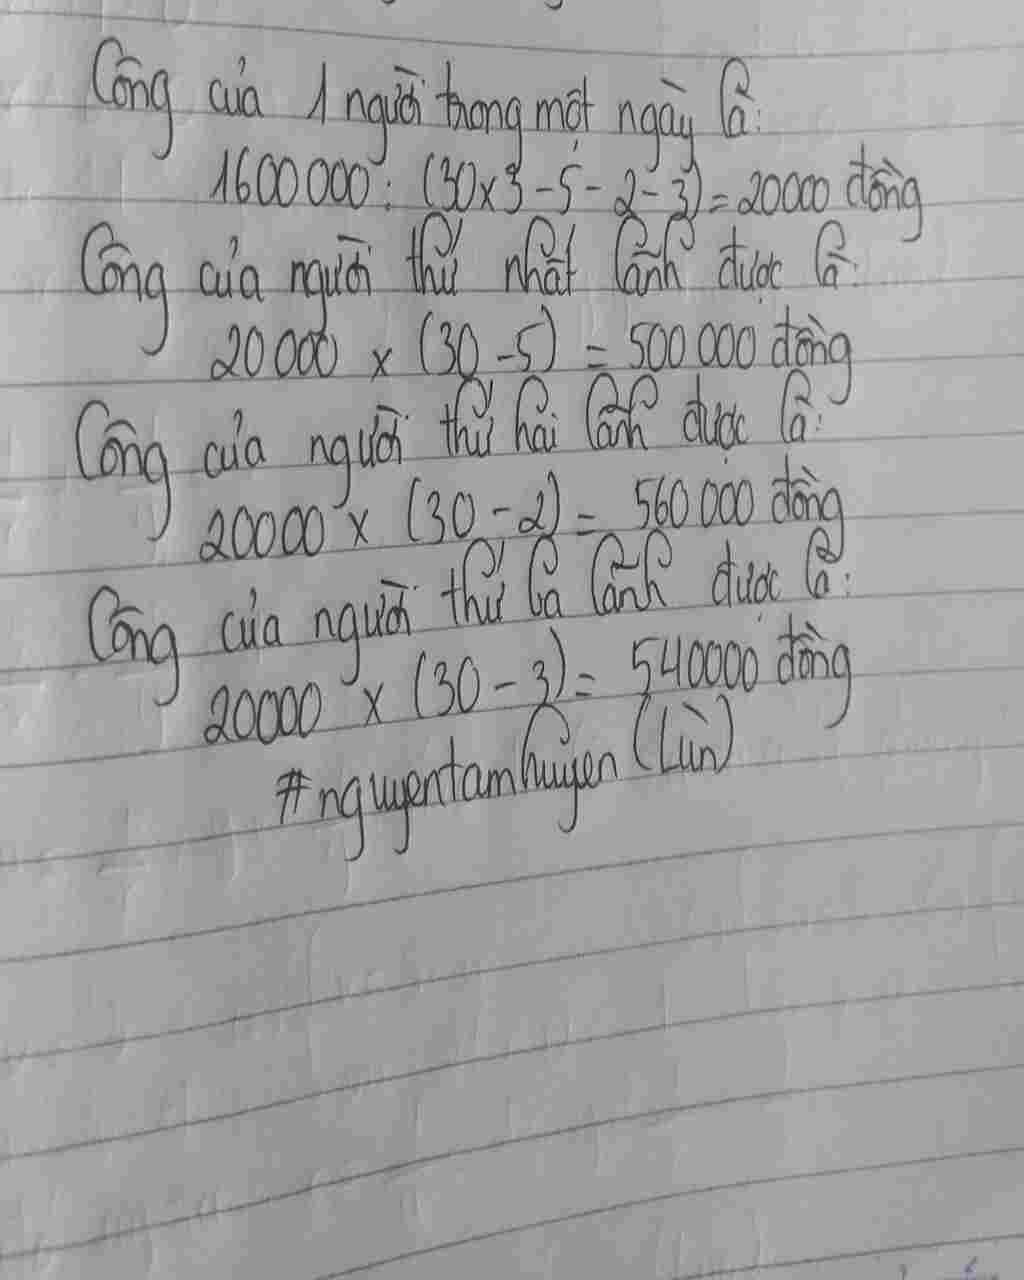 Công của 1 người trong một ngày là:
1600 000 : (30x3 - 5 - 2 - 3) = 20000 đồng
Công của người thứ nhất lãnh được là:
20 000 x (30 - 5) = 500 000 đồng
Công của người thứ hai lãnh được là:
20000 x (30 - 2) = 560 000 đồng
Công của người thứ ba lãnh được là:
20000 x (30 - 3) = 540000 đồng
#nguyentamhuyen (Lùn)